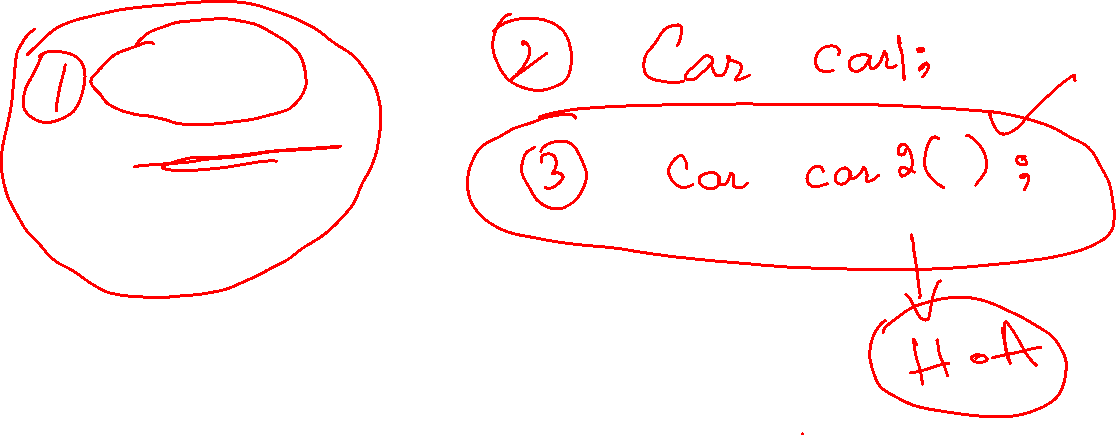 1
2 Car car1;
3 Car car2();
H.A